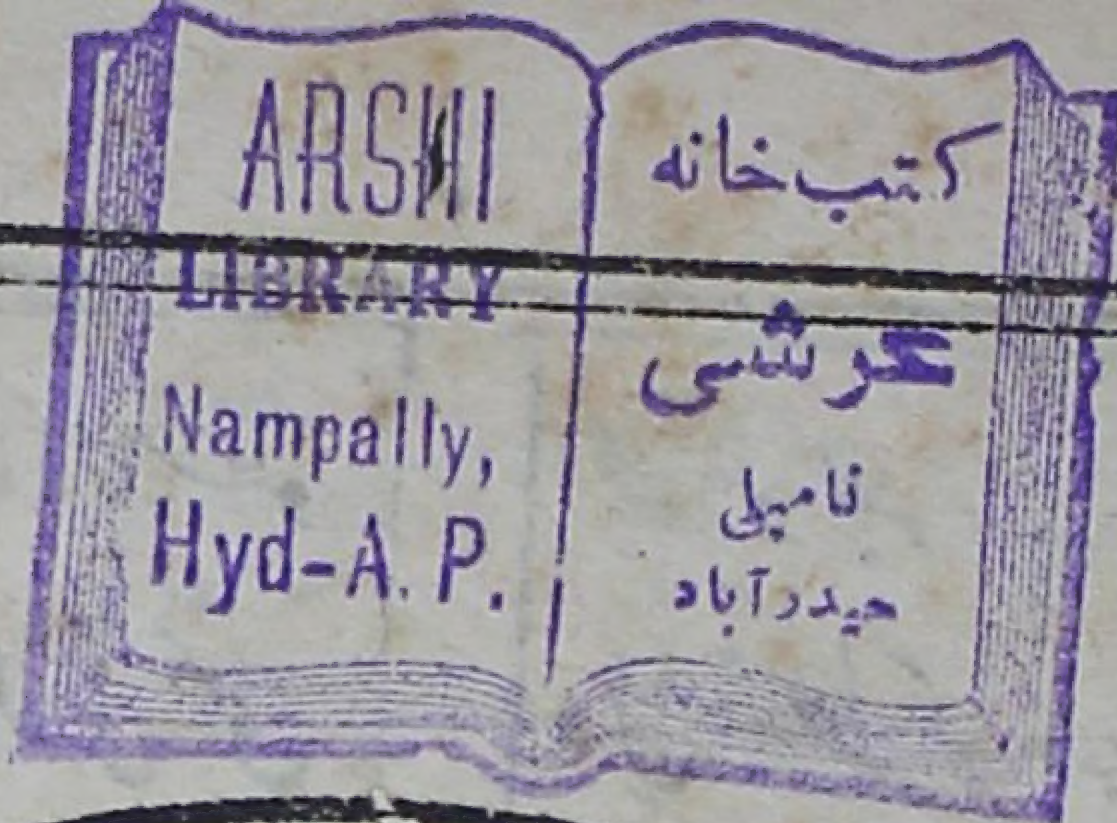 ARSHI
LIBRARY
Nampally,
Hyd-A. P.
کتب خانہ
عرشی
نامپلی
حیدرآباد